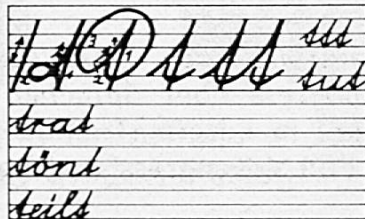 t t t t t ttt
tut
trat
tönt
teilt